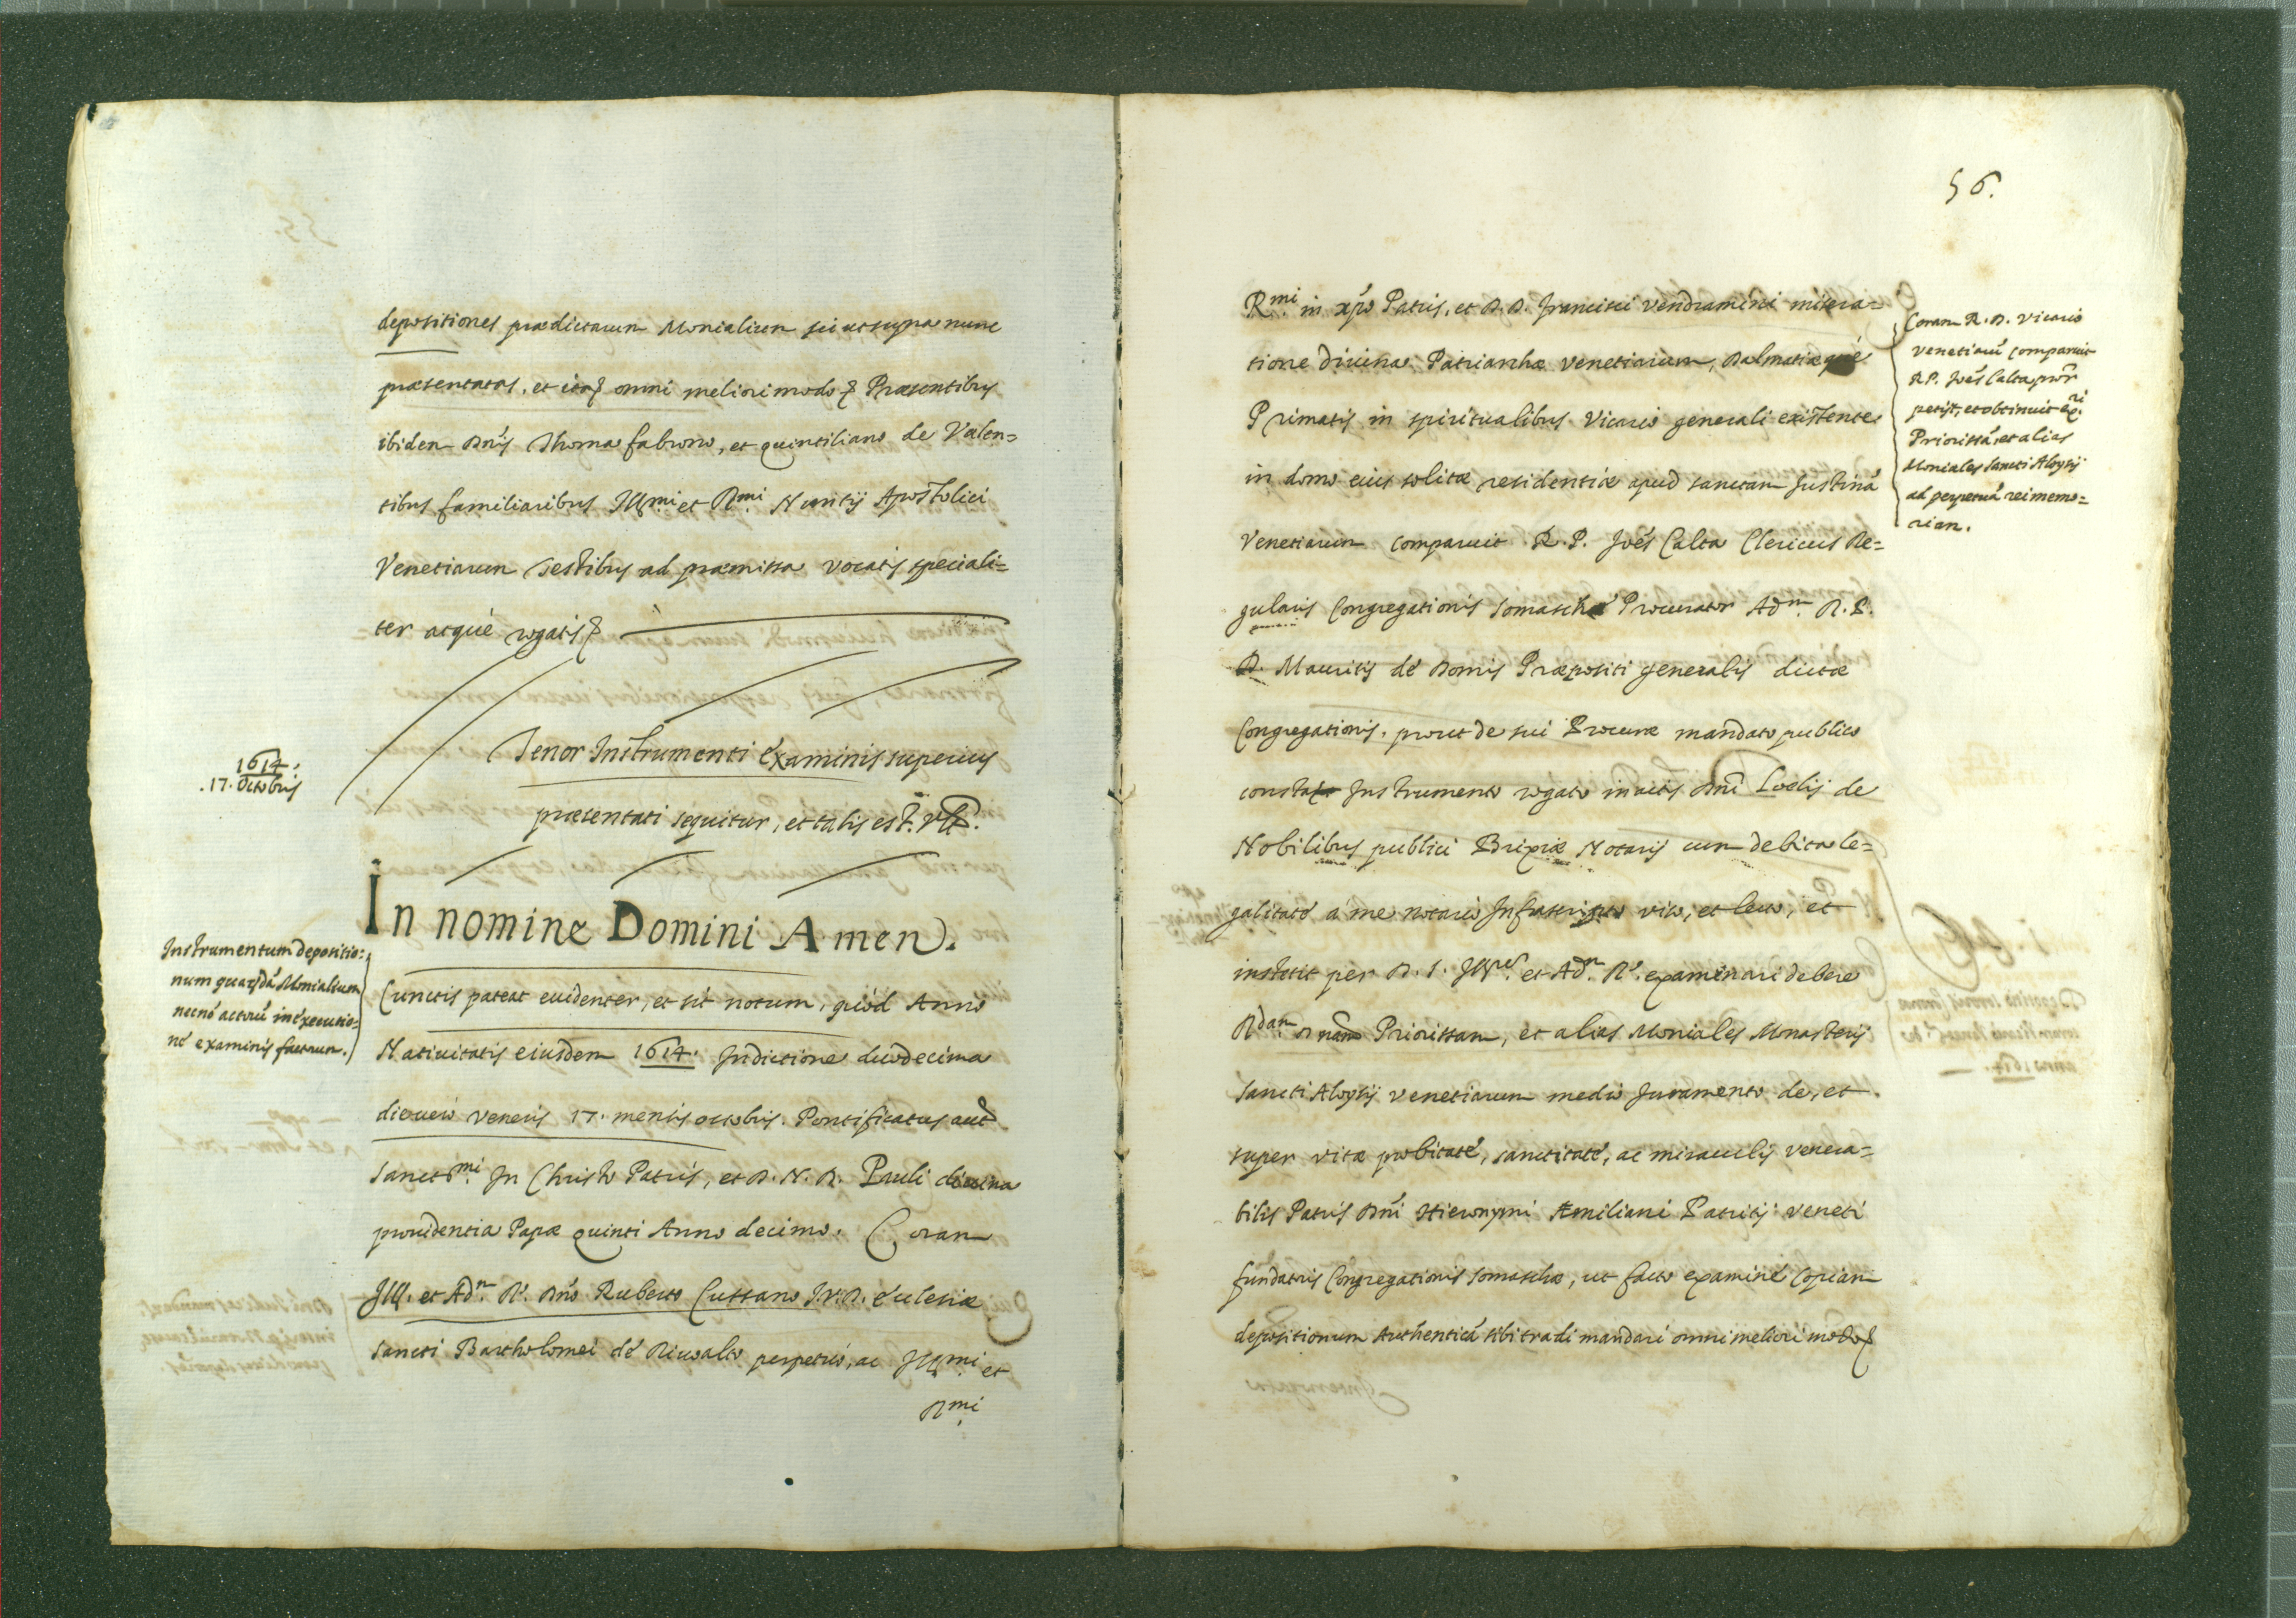 depositiones prædictarum Monialium sicut supra nunc
præsentatas, et ita omni meliori modo Præsentibus
ibidem Dñis Thoma fabrono, et quintiliano de Valen=
tibus familiaribus Ill.mi et R.mi Nuntij Apostolici
Venetiarum testibus ad præmissa vocatis speciali=
ter atque rogatis
1614.
.17. Octobris
Tenor Instrumenti examinis superius
præsentati sequitur, et talis est. Vz.
In nomine Domini Amen.
Instrumentum depositio=
num quarũdã Monialium
necnõ actorũ in executio=
ne examinis factorum.
Cunctis pateat euidenter, et sit notum, quod Anno
Natiuitatis eiusdem 1614. Indictione duodecima
die uero Veneris 17. mensis octobris. Pontificatus aut
Sanct.mi In Christo Patris, et D. N. D. Pauli diuina
prouidentia Papæ quinti Anno decimo. Coram
Ill. et Ad.m R. Dño Ruberto Cussano I. V. D. Ecclesiæ
Sancti Bartholomei de Riuoalto perpetuo, ac Ill.mi et
R.mi
56.
R.mi in xpõ Patris, et D. D. Francisci Vendramini misera=
tione diuina Patriarchæ Venetiarum, Dalmatiæque
Primatis in spiritualibus Vicario generali existente
in domo eius solitæ residentiæ apud sanctam Justinã
Venetiarum comparuit R. P. Joẽs Calta Clericus Re=
gularis Congregationis Somaschæ Procurator Ad.m R. P.
D. Mauritij de Domis Præpositi generalis dictæ
Congregationis, prout de sui Procuræ mandato publico
constat Instrumento rogato in actis Dñi Lœlij de
Nobilibus publici Brixiæ Notarij cum debita le=
galitate a me notario Infrascripto viso, et lecto, et
institit per D. S. Ill.rem et Ad.m R. examinari debere
R.dam Priorissam, et alias Moniales Monasterij
Sancti Aloysij Venetiarum medio Juramento de, et
super vitæ probitate, sanctitate, ac miraculis venera=
bilis Patris Dñi Hieronymi Æmiliani Patritij Veneti
fundatoris Congregationis Somaschæ, ut facto examine Copiam
depositionum Authenticã sibi tradi mandari omni meliori modo
Coram R. D. Vicario
Venetiarũ comparuit
R. P. Joẽs Calta procr
petijt, et obtinuit ex.ri
Priorissã, et alias
Moniales Sancti Aloysij
ad perpetuã rei memo=
riam.